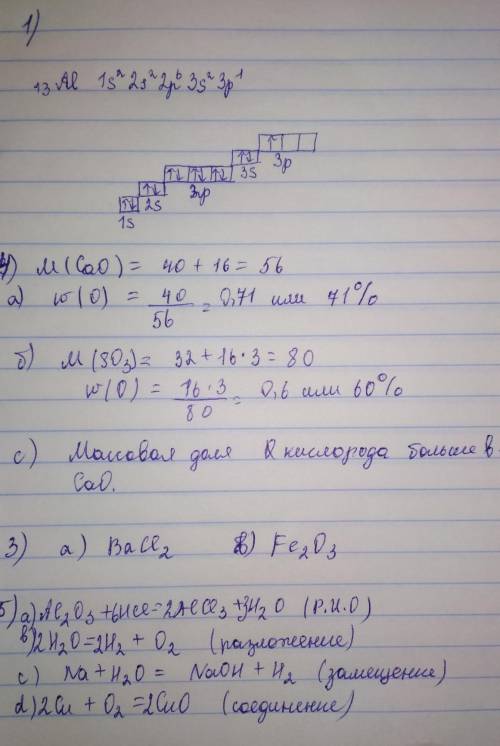 1)
₁₃Al 1s² 2s² 2p⁶ 3s² 3p¹
↑
↑↓ 3p
↑↓ ↑↓ ↑↓ 3s
↑↓ 2p
↑↓ 2s
1s
4) M(CaO) = 40 + 16 = 56
а) w(O) = 40/56 = 0,71 или 71%
б) M(SO₃) = 32 + 16·3 = 80
w(O) = 16·3/80 = 0,6 или 60%
с) Массовая доля кислорода больше в
CaO.
3) а) BaCl₂ в) Fe₂O₃
5) а) Al₂O₃ + 6HCl = 2AlCl₃ + 3H₂O (Р.И.О)
в) 2H₂O = 2H₂ + O₂ (разложение)
с) Na + H₂O = NaOH + H₂ (замещение)
d) 2Cu + O₂ = 2CuO (соединение)